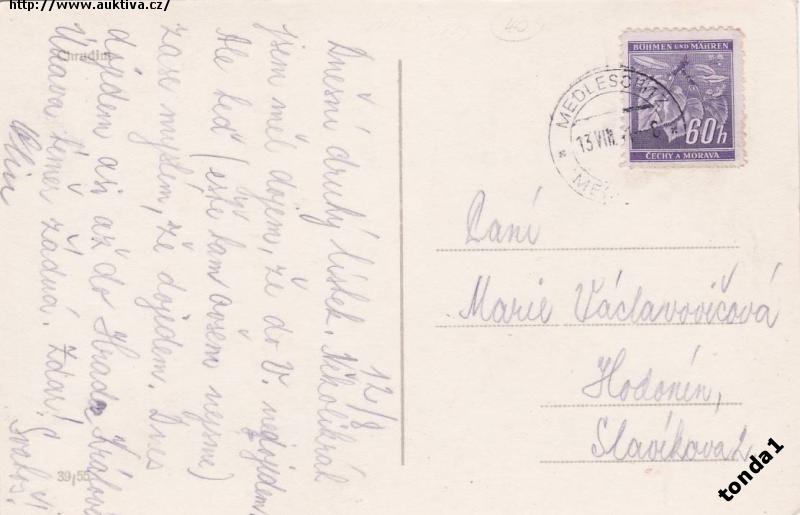 http://www.auktiva.cz/
40
Chrudim
12/8
Dnešní druhý lístek. Několikrát
jsem měl dojem, že do V. nedojdem.
Ale teď (ještě tam ovšem nejsme)
zase myslím, že dojdem. Dnes
dojdem asi až do Hradce Králové
Únava téměř žádná. Zdar!
39/55
BÖHMEN UND MÄHREN
60h
ČECHY A MORAVA
MEDLESCHITZ
13.VIII.
Paní
Marie Václavovičová
Hodonín,
Slavíkova 2
tonda1